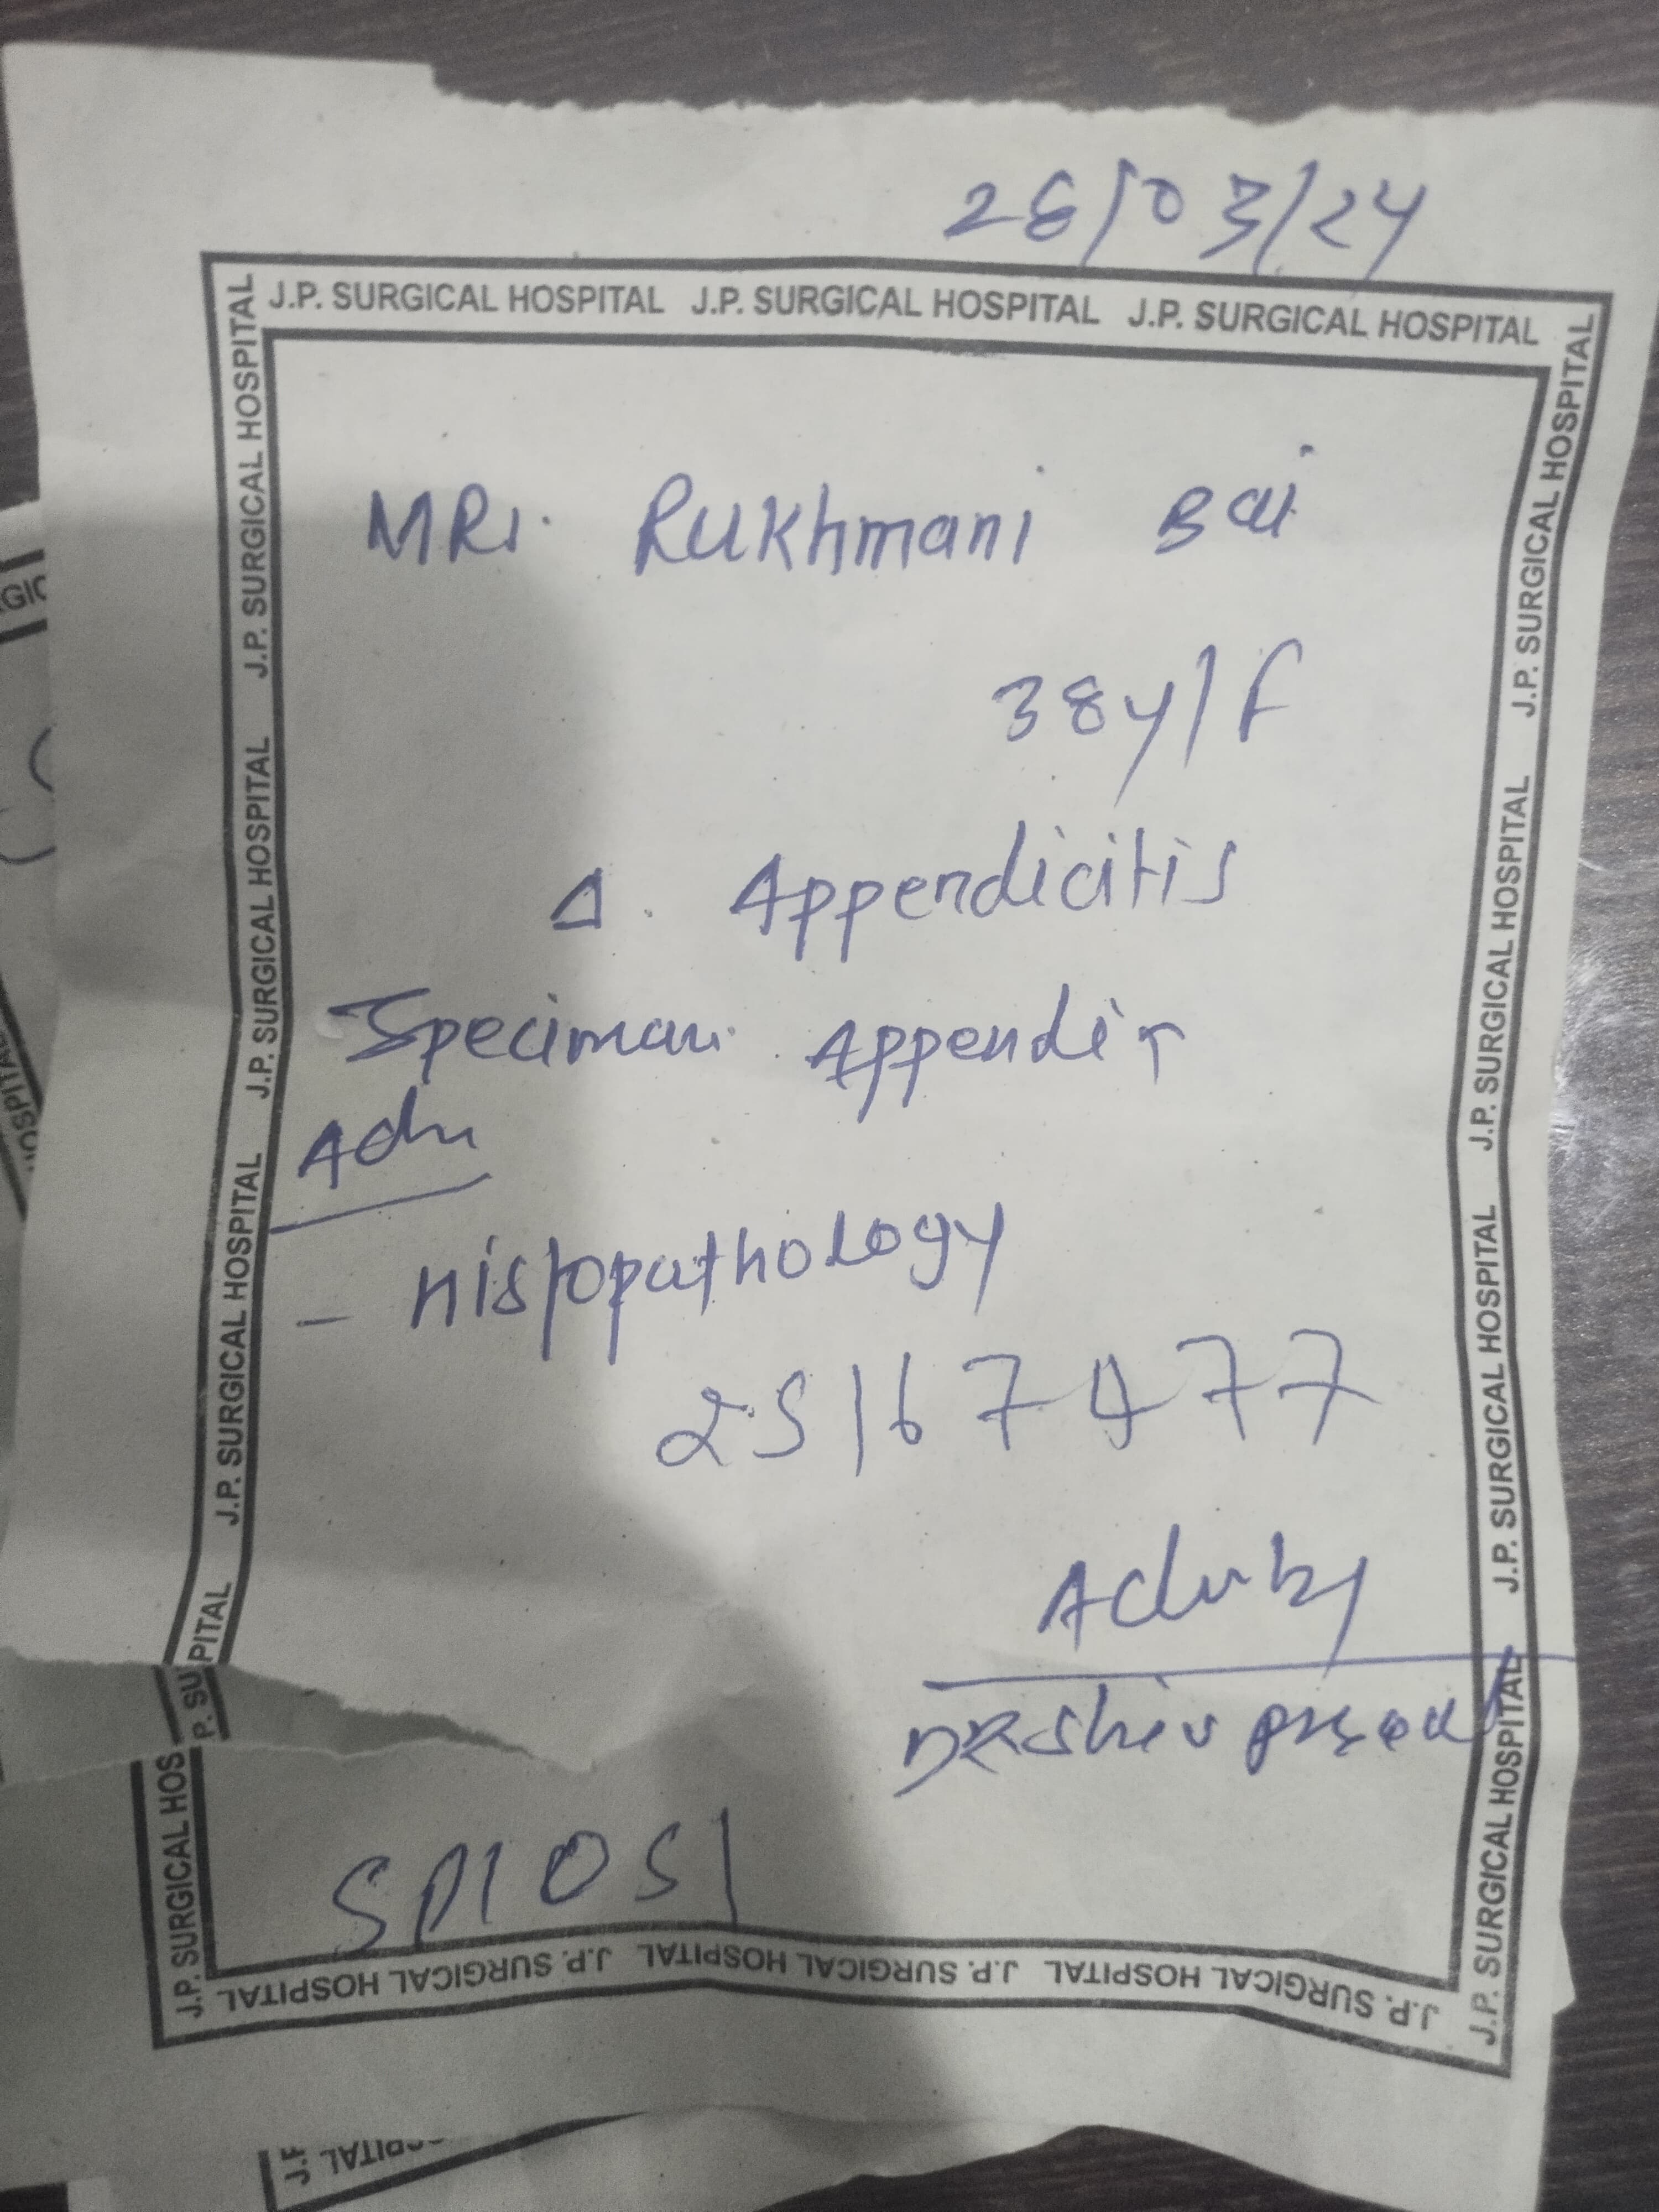 28/03/24
J.P. SURGICAL HOSPITAL J.P. SURGICAL HOSPITAL J.P. SURGICAL HOSPITAL
MRs. Rukhmani Bai
38y/F
Δ. Appendicitis
Speciman. Appendix
Adv
- Histopathology
25167477
Adv by
DR Shiv prasad
SP1051
J.P. SURGICAL HOSPITAL J.P. SURGICAL HOSPITAL J.P. SURGICAL HOSPITAL
J.P. SURGICAL HOSPITAL J.P. SURGICAL HOSPITAL J.P. SURGICAL HOSPITAL
J.P. SURGICAL HOSPITAL J.P. SURGICAL HOSPITAL J.P. SURGICAL HOSPITAL J.P. SURGICAL HOSPITAL